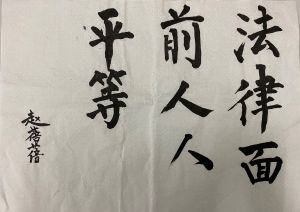 法律面
前人人
平等
赵蓓蓓